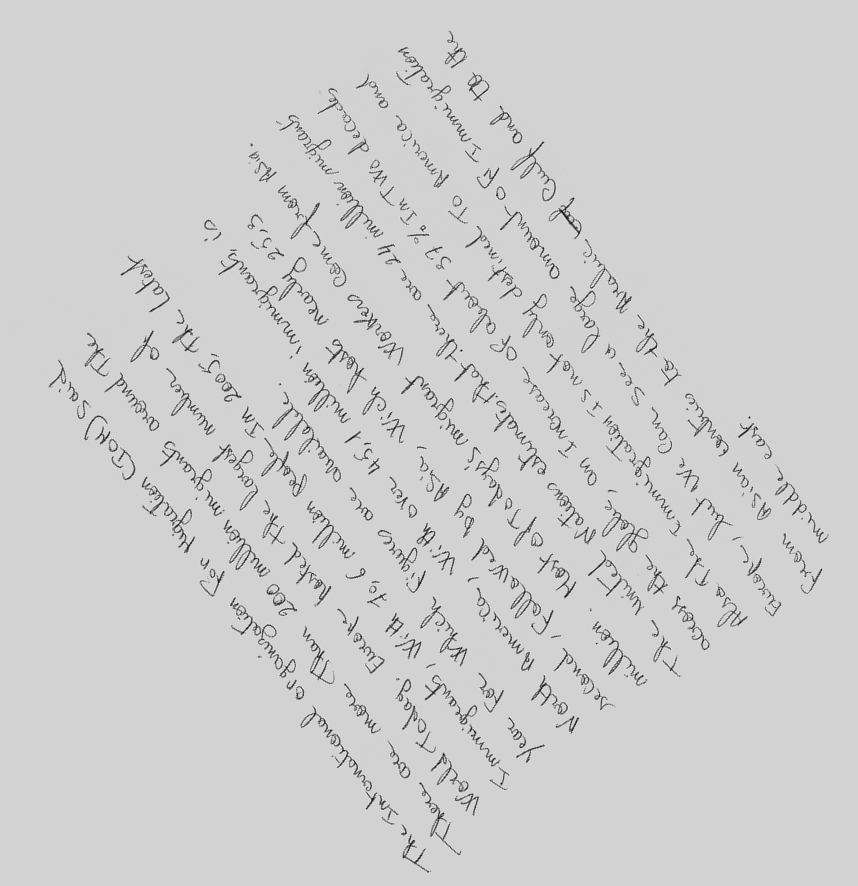 The International organization For Migration (IOM) Said
There are more Than 200 million migrants around The
World Today. Europe hosted The largest number of
Immigrants, With 70,6 million People In 2005, The Latest
Year For Which Figures are available.
North America, With over 45,1 million immigrants, is
second, Followed by Asia, Wich hosts nearly 25,3
million. Most of Today's migrant Workers come from Asia.
The United Nations estimates that there are 24 million migrants
across the globe, an Increase of about 37% In Two decades,
Also The Immigration Is not only destined To America and
Europe, but We Can See a large amount OF Immigration
From Asian contries to the Arabic Gulf and to the
middle east.